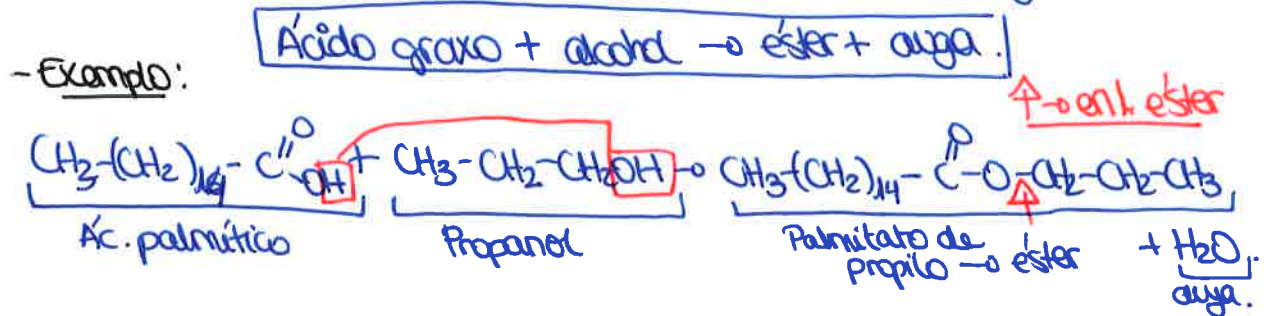 Ácido graxo + alcohol → éster + auga.
- Exemplo:
↑→ enl. éster
CH3-(CH2)14-C=O-OH + CH3-CH2-CH2OH → CH3-(CH2)14-C=O-O-CH2-CH2-CH3
Ác. palmítico Propanol Palmitato de propilo → éster + H2O.
auga.